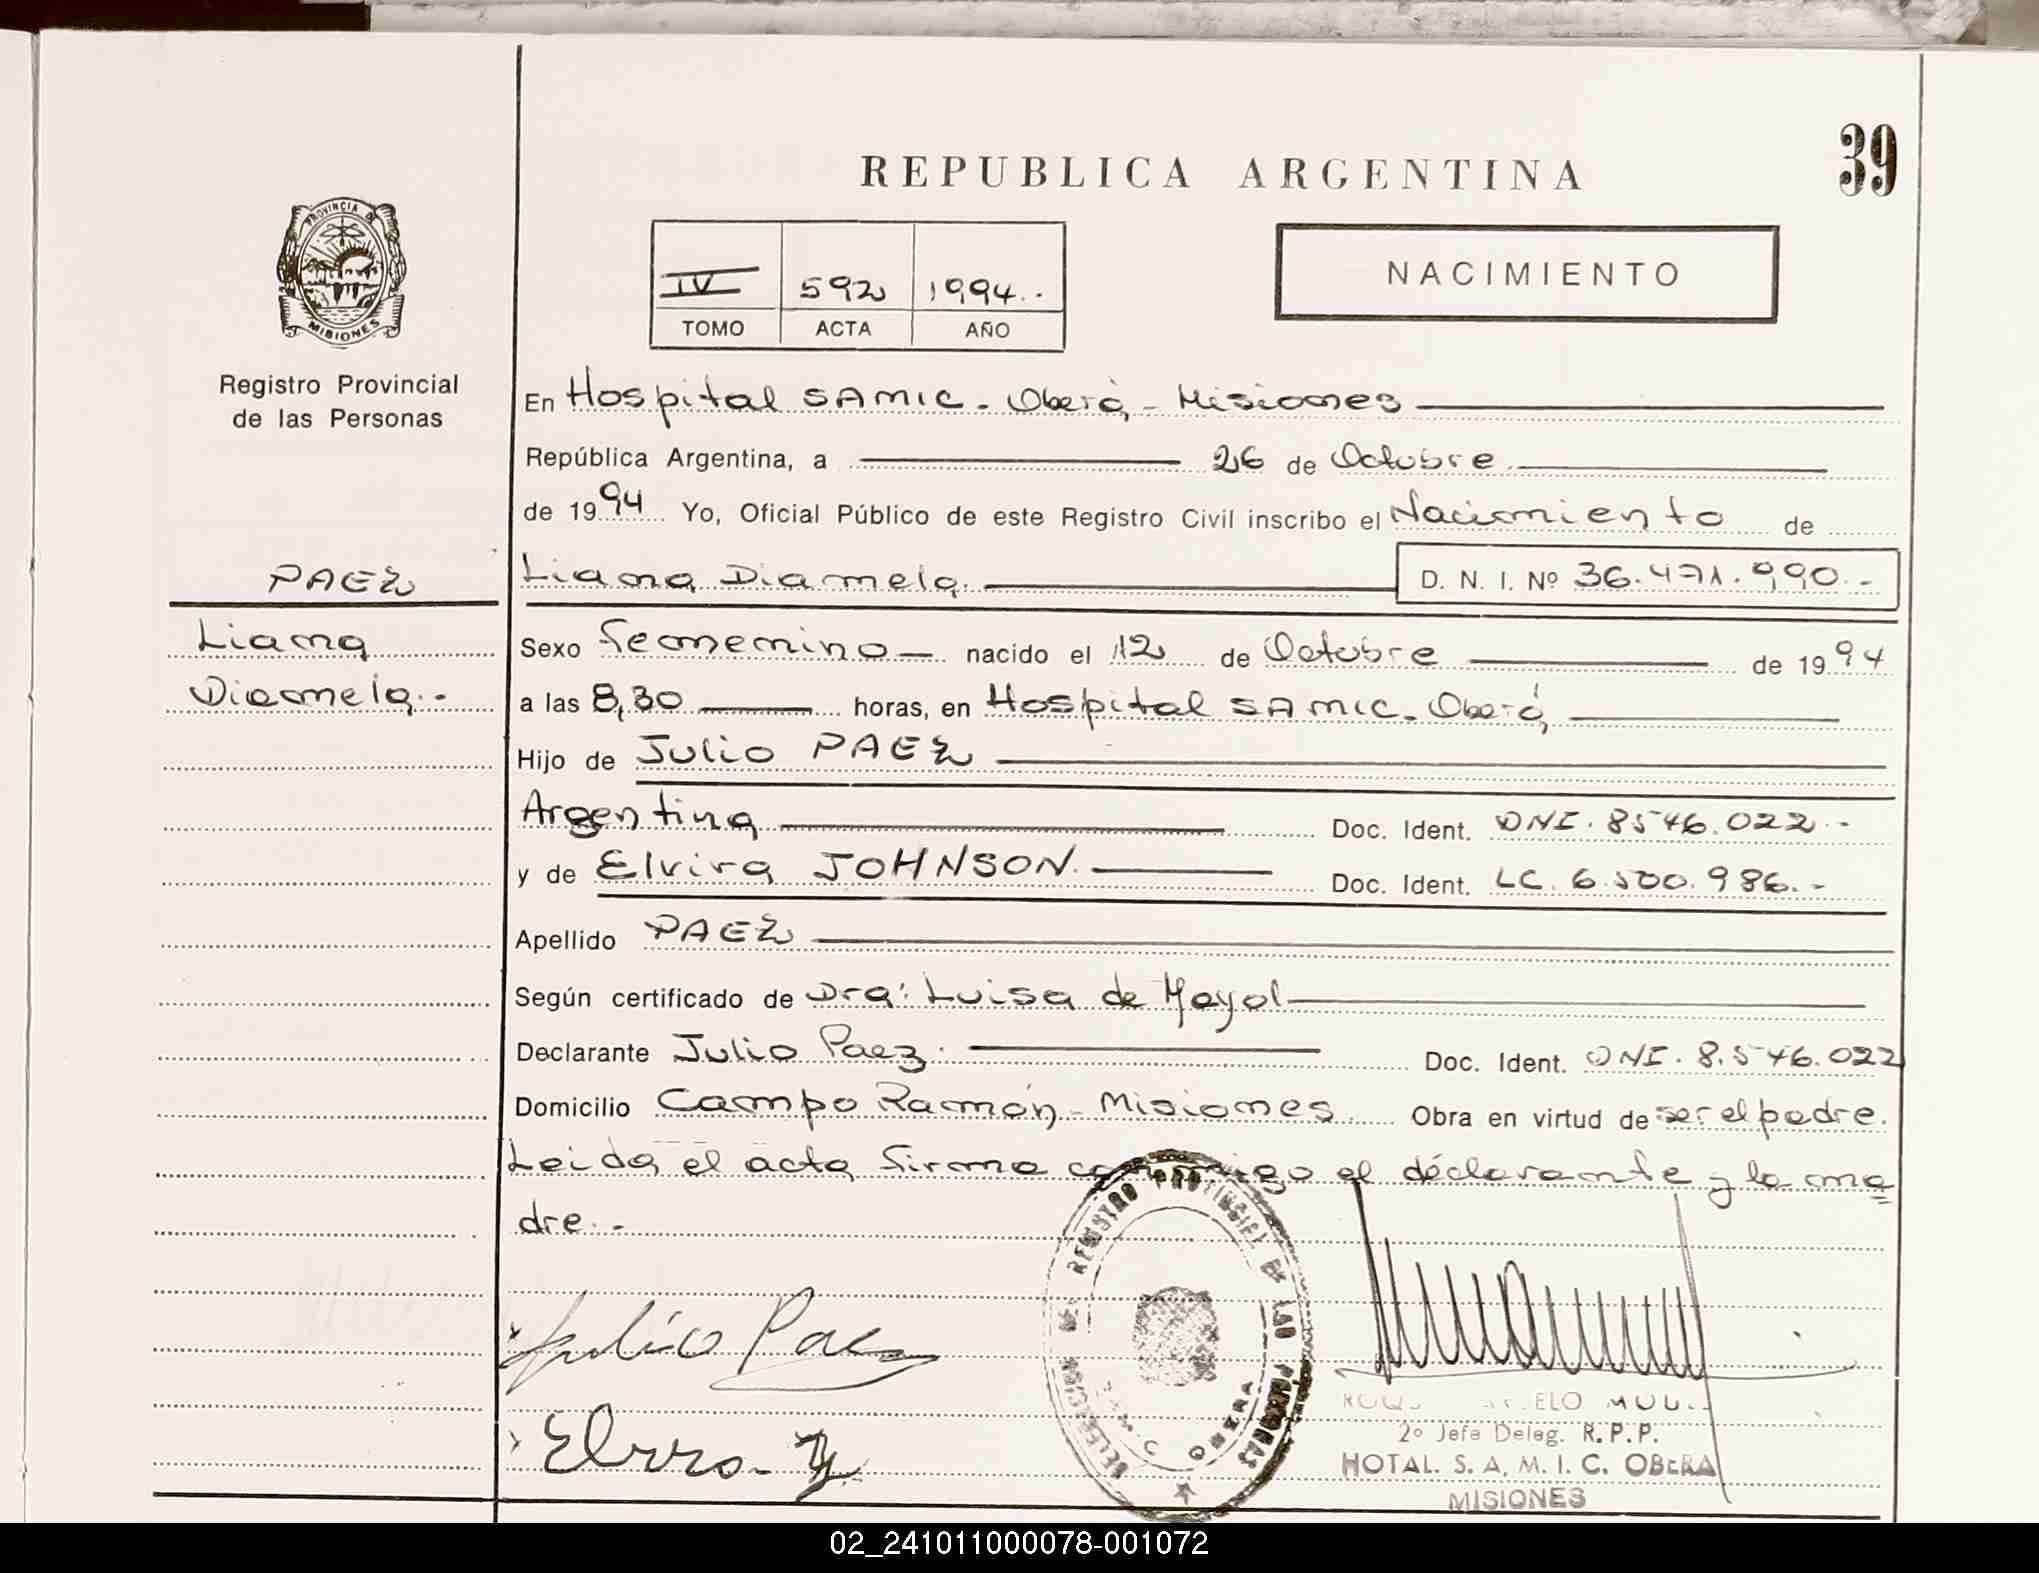 39
REPUBLICA ARGENTINA
PROVINCIA DE
MISIONES
Registro Provincial
de las Personas
IV 592 1994.-
TOMO ACTA AÑO
NACIMIENTO
En Hospital SAMIC. Oberá, - Misiones
República Argentina, a 26 de Octubre
de 1994 Yo, Oficial Público de este Registro Civil inscribo el Nacimiento de
PAEZ
Liana
Diamela.-
Liana Diamela. D. N. I. Nº 36.471.990.-
Sexo Femenino nacido el 12 de Octubre de 1994
a las 8,30 horas, en Hospital SAMIC. Oberá,
Hijo de Julio PAEZ
Argentina Doc. Ident. DNI. 8546.022.-
y de Elvira JOHNSON. Doc. Ident. LC. 6.500.986.-
Apellido PAEZ
Según certificado de Dra: Luisa de Mayol
Declarante Julio Paez. Doc. Ident. DNI. 8.546.022
Domicilio Campo Ramón, - Misiones. Obra en virtud de ser el padre.
Leida el acta firma conmigo el declarante y la ma
dre.-
Julio Paez
REGISTRO PROVINCIAL DE LAS PERSONAS
OBERA
2º Jefe Deleg. R.P.P.
HOTAL. S. A. M. I. C. OBERA
MISIONES
02_241011000078-001072